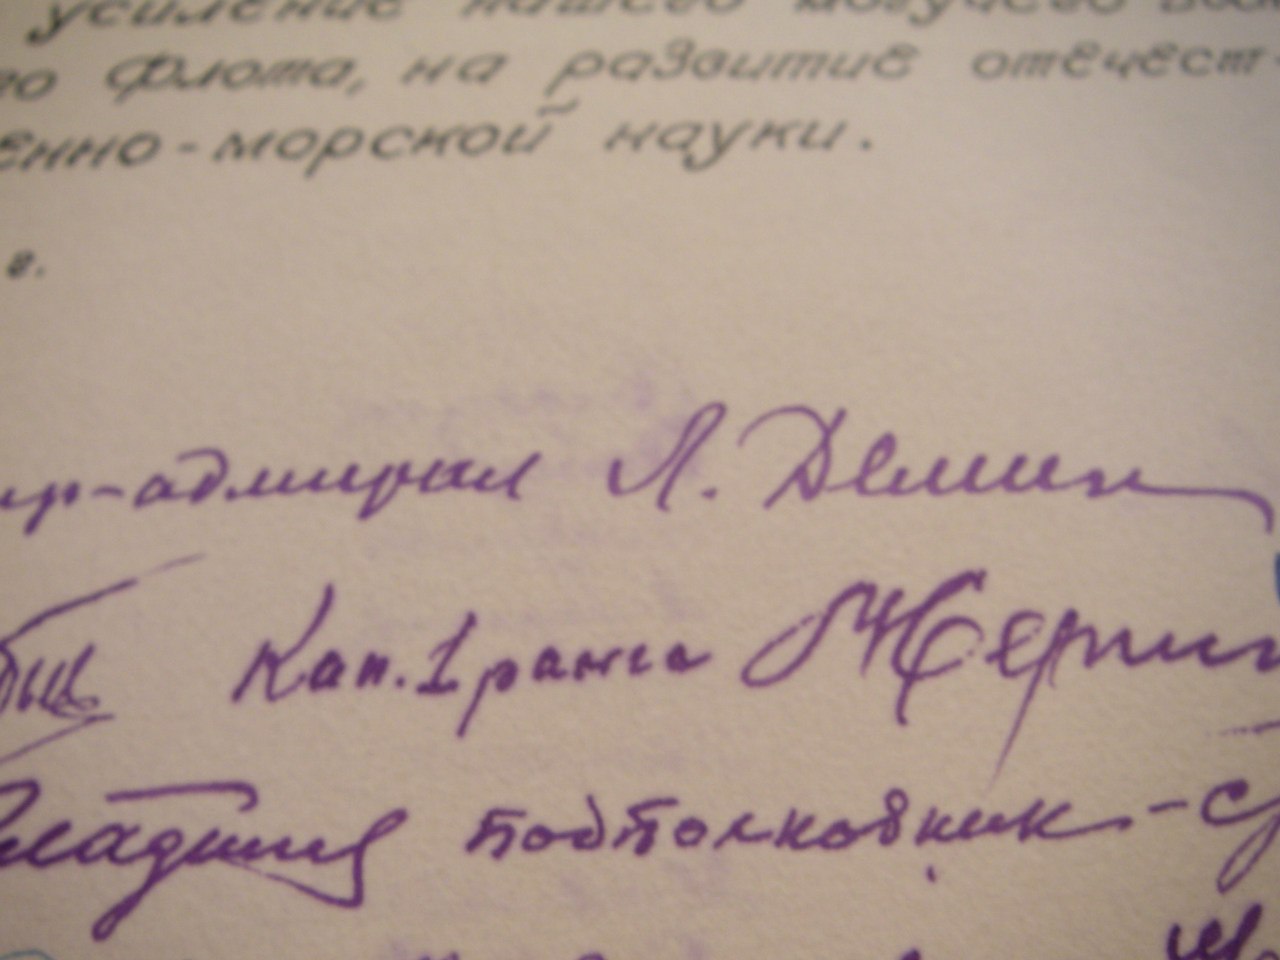 усиление нашего могучего Воен
го Флота, на развитие отечест-
енно-морской науки.
г.
ир-адмирал Л. Демин
Кап. 1 ранга
подполковник-